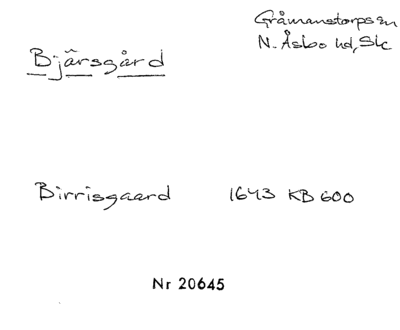 Gråmanstorps sn
Bjärsgård
N. Åsbo hd, Sk
Birrisgaard 1643 KB 600
Nr 20645